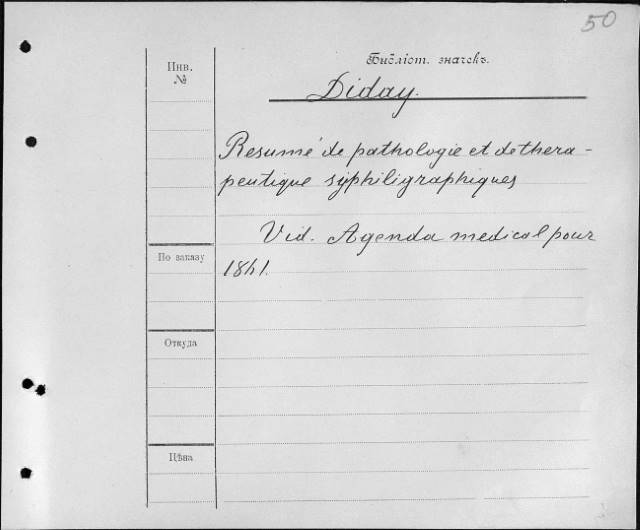 50
Библіот. значекъ.
Инв.
№
Diday.
Resumé de pathologie et de thera-
peutique syphiligraphiques
Vid. Agenda medical pour
1841.
По заказу
Откуда
Цѣна